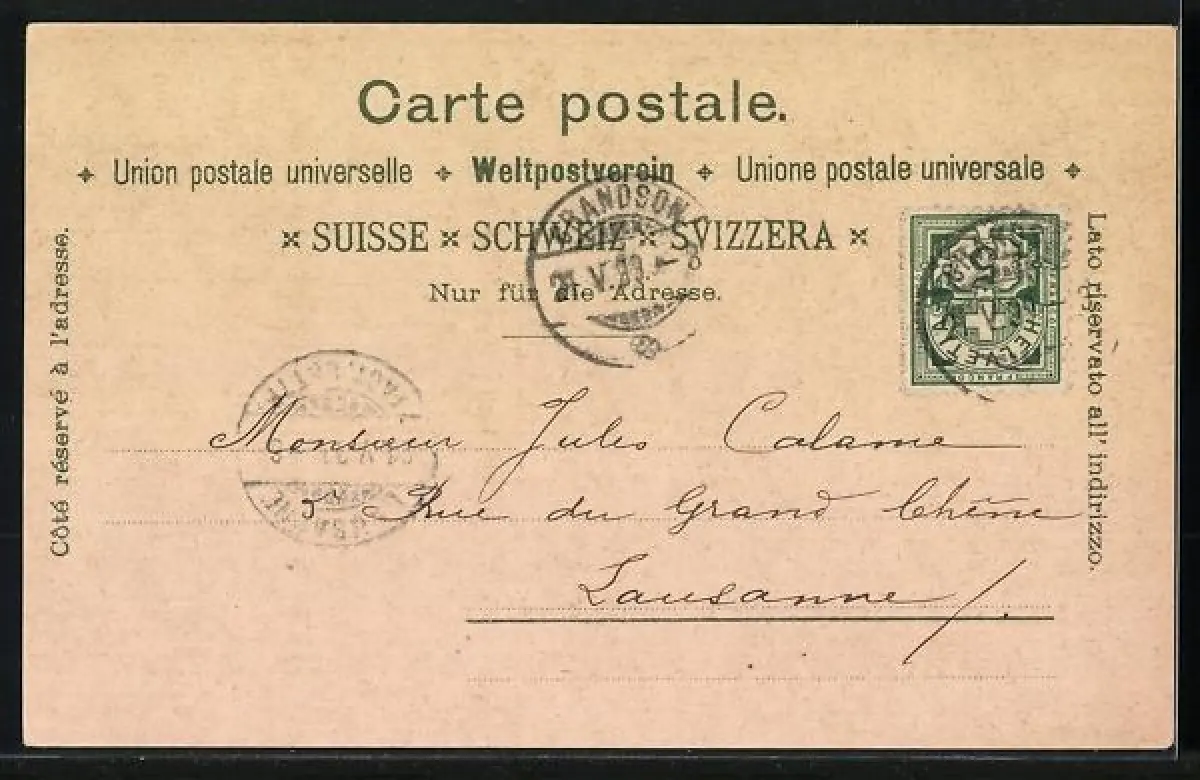 Carte postale.
Union postale universelle Weltpostverein Unione postale universale
SUISSE SCHWEIZ SVIZZERA
Nur für die Adresse.
Côté réservé à l'adresse.
Lato riservato all' indirizzo.
GRANDSON
HELVETIA
FRANCO
Monsieur Jules Calame
5 Rue du Grand Chêne
Lausanne /.